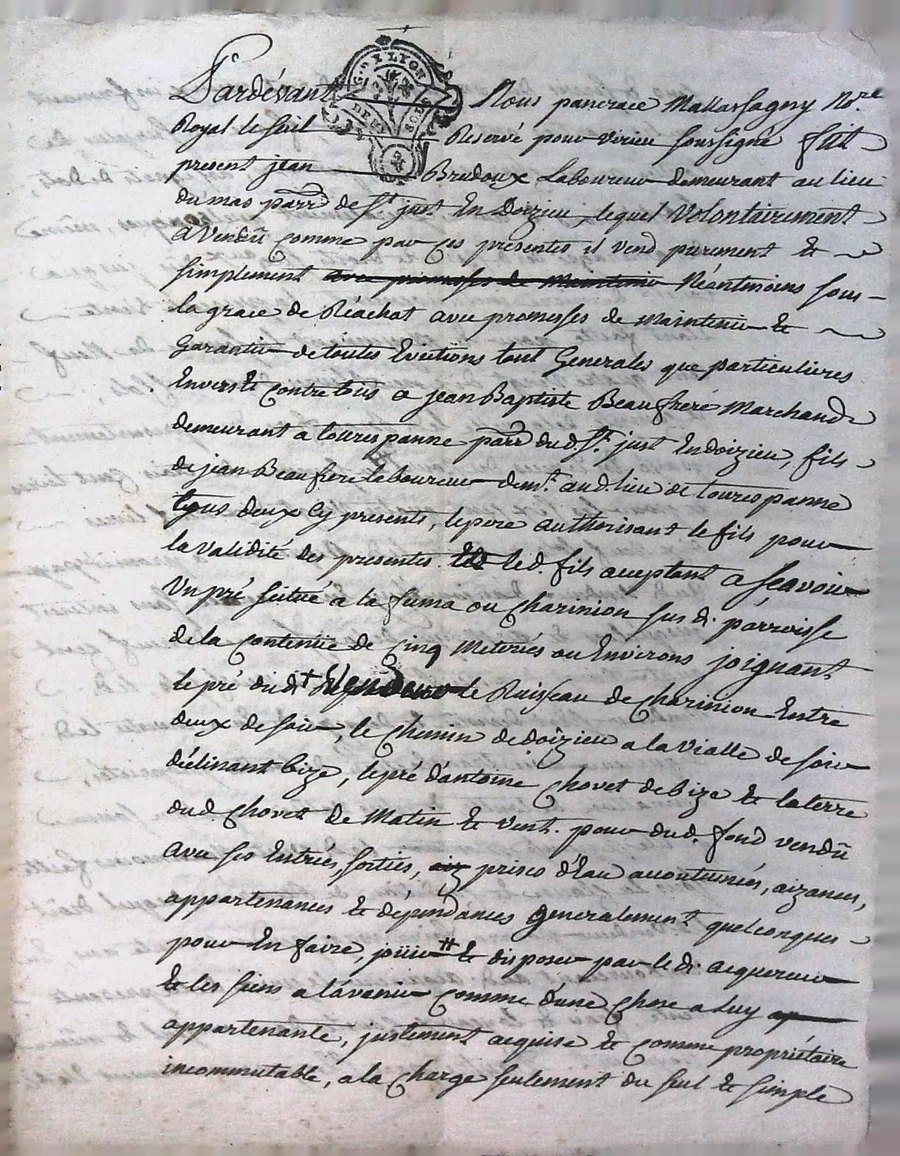 Pardévant Nous pancrace Mallassagny No.re
Royal le seul Reservé pour virieu soussigné fut
present jean Bredoux Laboureur demeurant au lieu
du mas parr. de St. just En Doizieu, lequel Volontairement
a Vendû comme par ces presentes il vend purement &
simplement avec promesses de Maintenir Néantmoins sous
la grace de Réachat avec promesses de maintenir &
Garantir de toutes Evictions tant Generales que particulieres
Envers & contre tous a jean Baptiste Beaufrere Marchand
demeurant a tourespanne parr. du d. St. just En doizieu, fils
de jean Beaufrere laboureur demt. au d. lieu de tourespanne
tous deux Cy presents, le pere authorisant le fils pour
la validité des presentes. le d. fils aceptant a scavoir
Un pré scitué a la fuma ou Charinion sus d. parroisse
de la contenüe de Cinq Meterées ou Environs joignant
le pré dudt Vendeur le Ruisseau de Charinion Entre
deux de soir, le Chemin de doizieu a la Vialle de soir
déclinant bize, le pré d'antoine Chovet de bize & la terre
dud Chovet de Matin & Vent. pour du d. fond vendû
avec ses Entrées, sorties, prises d'Eau acoutumées, aizances,
appartenances & dépendances generalement quelconques
pour En faire, joüir & disposer par le d. acquereur
& les siens a l'avenir comme d'une Chose a luy ap
appartenante, justement acquise & comme propriétaire
incommutable, a la Charge seulement du seul & simple